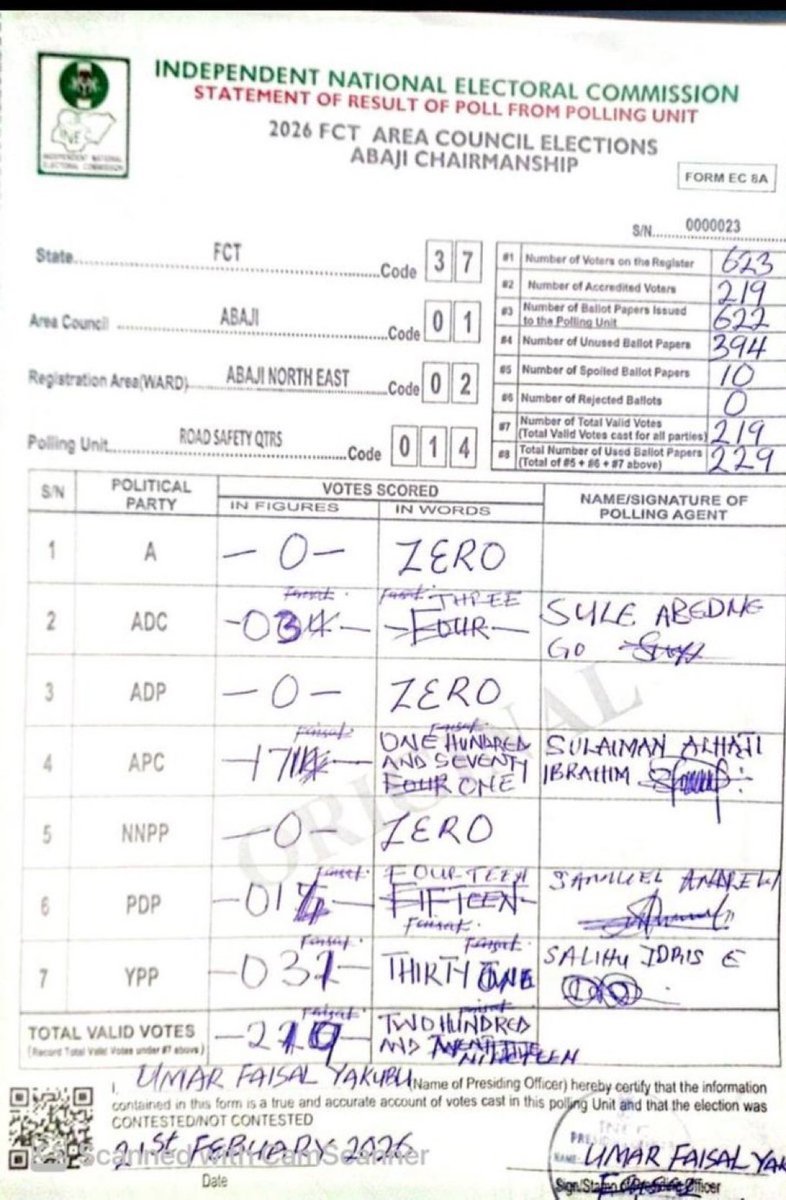 INDEPENDENT NATIONAL ELECTORAL COMMISSION
STATEMENT OF RESULT OF POLL FROM POLLING UNIT
2026 FCT AREA COUNCIL ELECTIONS
ABAJI CHAIRMANSHIP
INDEPENDENT NATIONAL
ELECTORAL COMMISSION
FORM EC 8A
S/N.... 0000023
State FCT Code 3 7
Area Council ABAJI Code 0 1
Registration Area(WARD) ABAJI NORTH EAST Code 0 2
Polling Unit ROAD SAFETY QTRS Code 0 1 4
#1 Number of Voters on the Register 623
#2 Number of Accredited Voters 219
#3 Number of Ballot Papers Issued to the Polling Unit 622
#4 Number of Unused Ballot Papers 394
#5 Number of Spoiled Ballot Papers 10
#6 Number of Rejected Ballots 0
#7 Number of Total Valid Votes (Total Valid Votes cast for all parties) 219
#8 Total Number of Used Ballot Papers (Total of #5 + #6 + #7 above) 229
S/N POLITICAL PARTY VOTES SCORED NAME/SIGNATURE OF POLLING AGENT
IN FIGURES IN WORDS
1 A -0- ZERO
2 ADC THREE FOUR SULE ABEDNE GO
3 ADP -0- ZERO
4 APC Faisal ONE HUNDRED AND SEVENTY FOUR ONE SULAIMAN ALHAJI IBRAHIM
5 NNPP -0- ZERO
6 PDP Faisal FOURTEEN FIFTEEN Faisal SAMUEL ANDREW
7 YPP Faisal -031- Faisal THIRTY ONE SALIHU IDRIS E
TOTAL VALID VOTES Faisal -219- TWO HUNDRED AND NINETEEN
(Record Total Valid Votes under #7 above)
ORIGINAL
I, UMAR FAISAL YAKUBU (Name of Presiding Officer) hereby certify that the information
contained in this form is a true and accurate account of votes cast in this polling Unit and that the election was
CONTESTED/NOT CONTESTED
21st FEBRUARY 2026
Date
Scanned with CamScanner
INEC
NAME: UMAR FAISAL YAK
Sign/Stamp of Presiding Officer